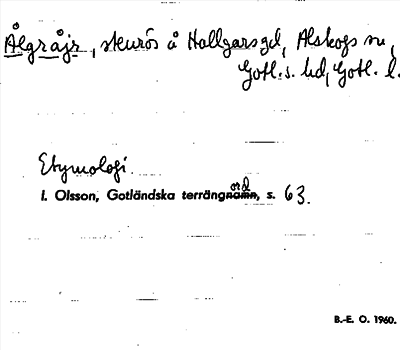 Ålgråjr, stenrös å Hallgarsgd, Alskogs sn,
Gotl. s. hd, Gotl. l.
Etymologi.
I. Olsson, Gotländska terrängord, s. 63.
B.-E. O. 1960.